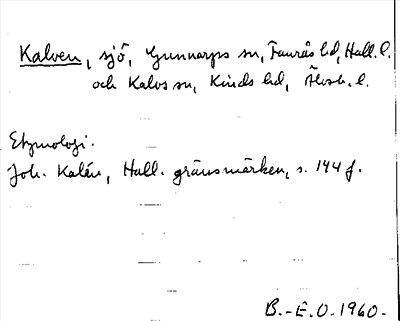 Kalven, sjö, Gunnarps sn, Faurås hd, Hall. l.
och Kalvs sn, Kinds hd, Älvsb. l.
Etymologi.
Joh. Kalén, Hall. gränsmärken, s. 144 f.
B.-E.O. 1960.